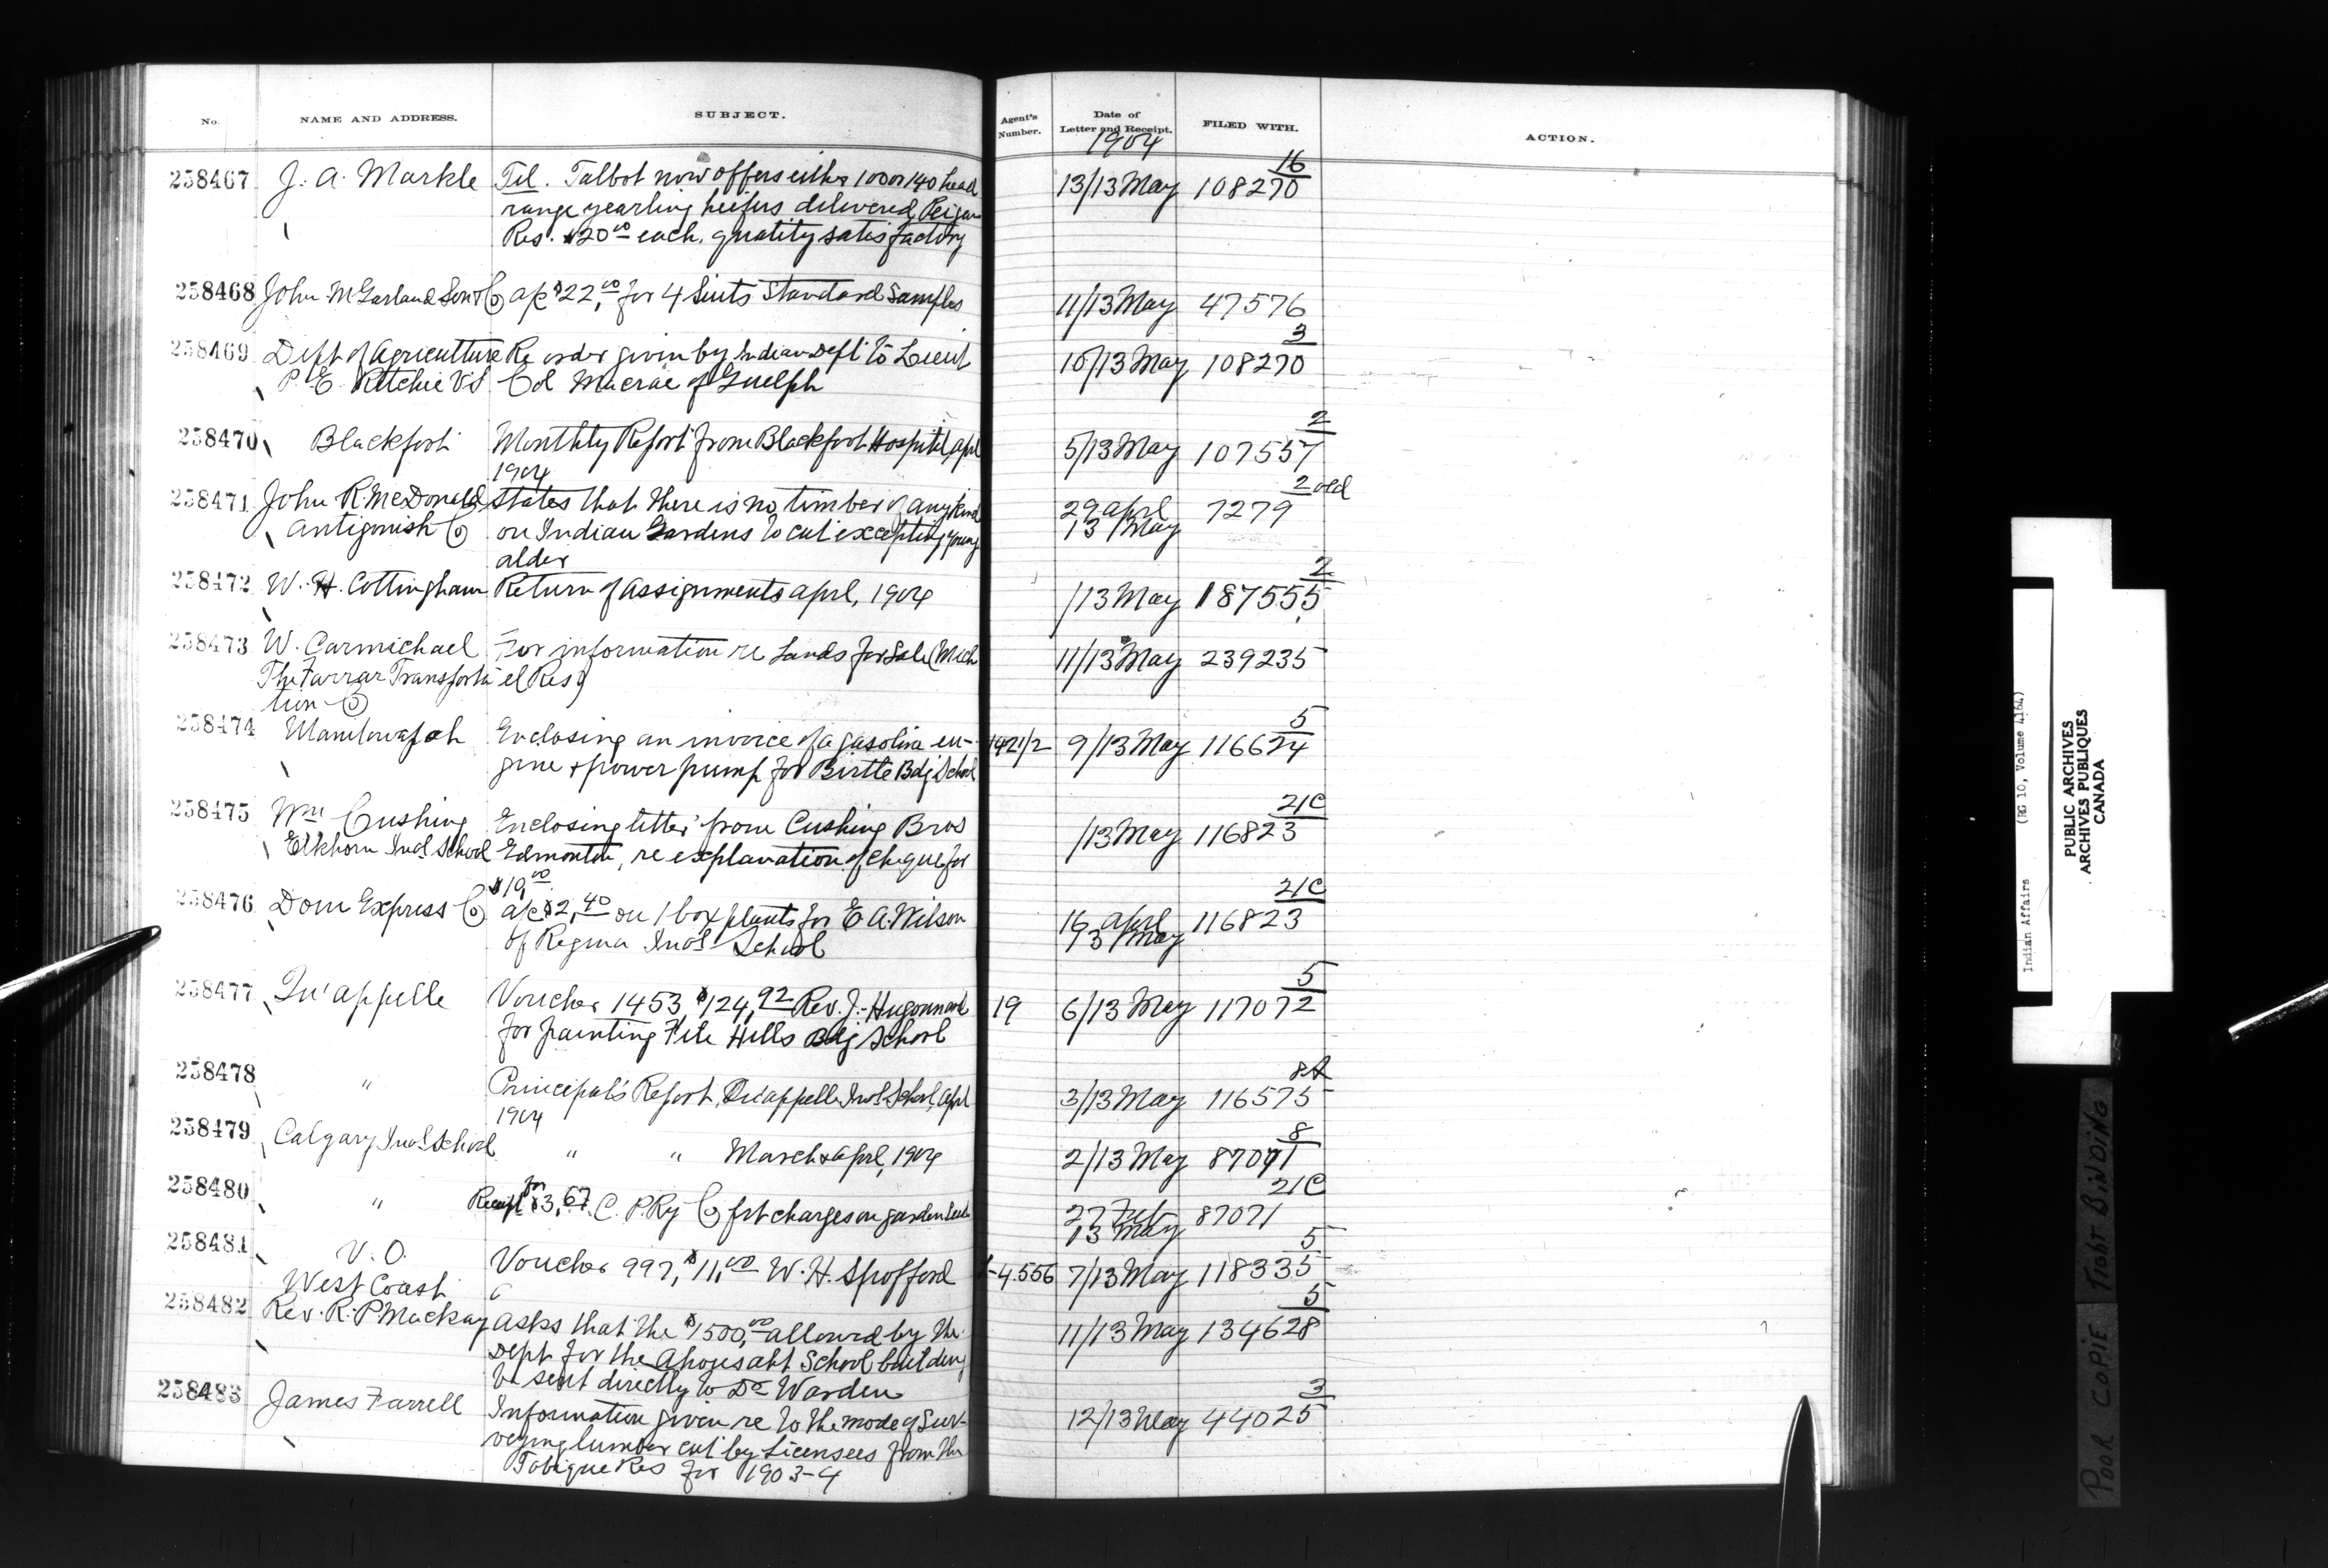 No. NAME AND ADDRESS. SUBJECT. Agent's Number. Date of Letter and Receipt. FILED WITH. ACTION.
1904
16
258467 J. A. Markle Tel. Talbot now offers either 100 or 140 head 13/13 May 108270
range yearling heifers delivered Peigan
Res. $20.00 each, quality satisfactory
258468 John McGarland Son & Co a/c $22,00 for 4 Suits Standard Samples 11/13 May 47576
3
258469 Dept of Agriculture Re order given by Indian Dept to Lieut 10/13 May 108270
P. E. Ritchie V S Col Macrae of Guelph
2
258470 Blackfoot Monthly Report from Blackfoot Hospital, Aprl 5/13 May 107557
1904
2 old
258471 John R. McDonald States that there is no timber of any kind 29 april 7279
Antigonish Co on Indian Gardens to cut excepting young 13 / May
alder
2
258472 W. H. Cottingham Return of assignments aprl, 1904 /13 May 187555
258473 W. Carmichael For information re Lands for Sale (Mich 11/13 May 239235
The Farrar Transporta el Res)
tion Co
5
258474 Manitowapah Enclosing an invoice of a gasoline en- 1421/2 9/13 May 116624
gine & power pump for Birtle Bdg School
21C
258475 Wm Cushing Enclosing letter from Cushing Bros /13 May 116823
Elkhorn Indl School Edmonton, re explanation of cheque for
$10,00
21C
258476 Dom Express Co a/c $2,40 on 1 box plants for E A. Wilson 16 april 116823
of Regina Indl School 13 / May
5
258477 Qu'appelle Voucher 1453, $124,92 Rev. J. Hugonnard 19 6/13 May 117072
for painting File Hills Bdg School
8A
258478 " Principal's Report, Qu'appelle Indl School, Aprl 3/13 May 116575
1904
8
258479 Calgary Indl School " " March & aprl, 1904 2/13 May 87071
21C
258480 " Receipt for $3,67 C. P. Ry Co frt charges on garden seeds 27 Feb 87071
13 May
5
258481 V. O. Voucher 997, $11,00 W. H. Spofford 4.556 7/13 May 118335
West Coast
5
258482 Rev. R. P. Mackay Asks that the $1500,00 allowed by the 11/13 May 134628
Dept for the Ahousaht School building
be sent directly to Dr Warden
3
258483 James Farrell Information given re to the mode of Sur- 12/13 May 44025
veying lumber cut by Licensees from the
Tobique Res for 1903-4
Indian Affairs (RG 10, Volume 4164)
PUBLIC ARCHIVES
ARCHIVES PUBLIQUES
CANADA
POOR COPIE TIGHT BINDING